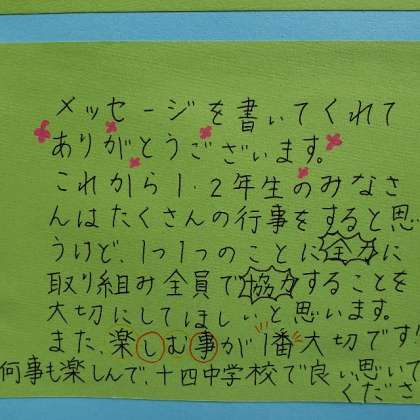 メッセージを書いてくれて
ありがとうございます。
これから1・2年生のみなさ
んはたくさんの行事をすると思
うけど、1つ1つのことに全力に
取り組み全員で協力することを
大切にしてほしいと思います。
また、楽しむ事が1番大切です!
何事も楽しんで、十四中学校で良い思いで
くださ